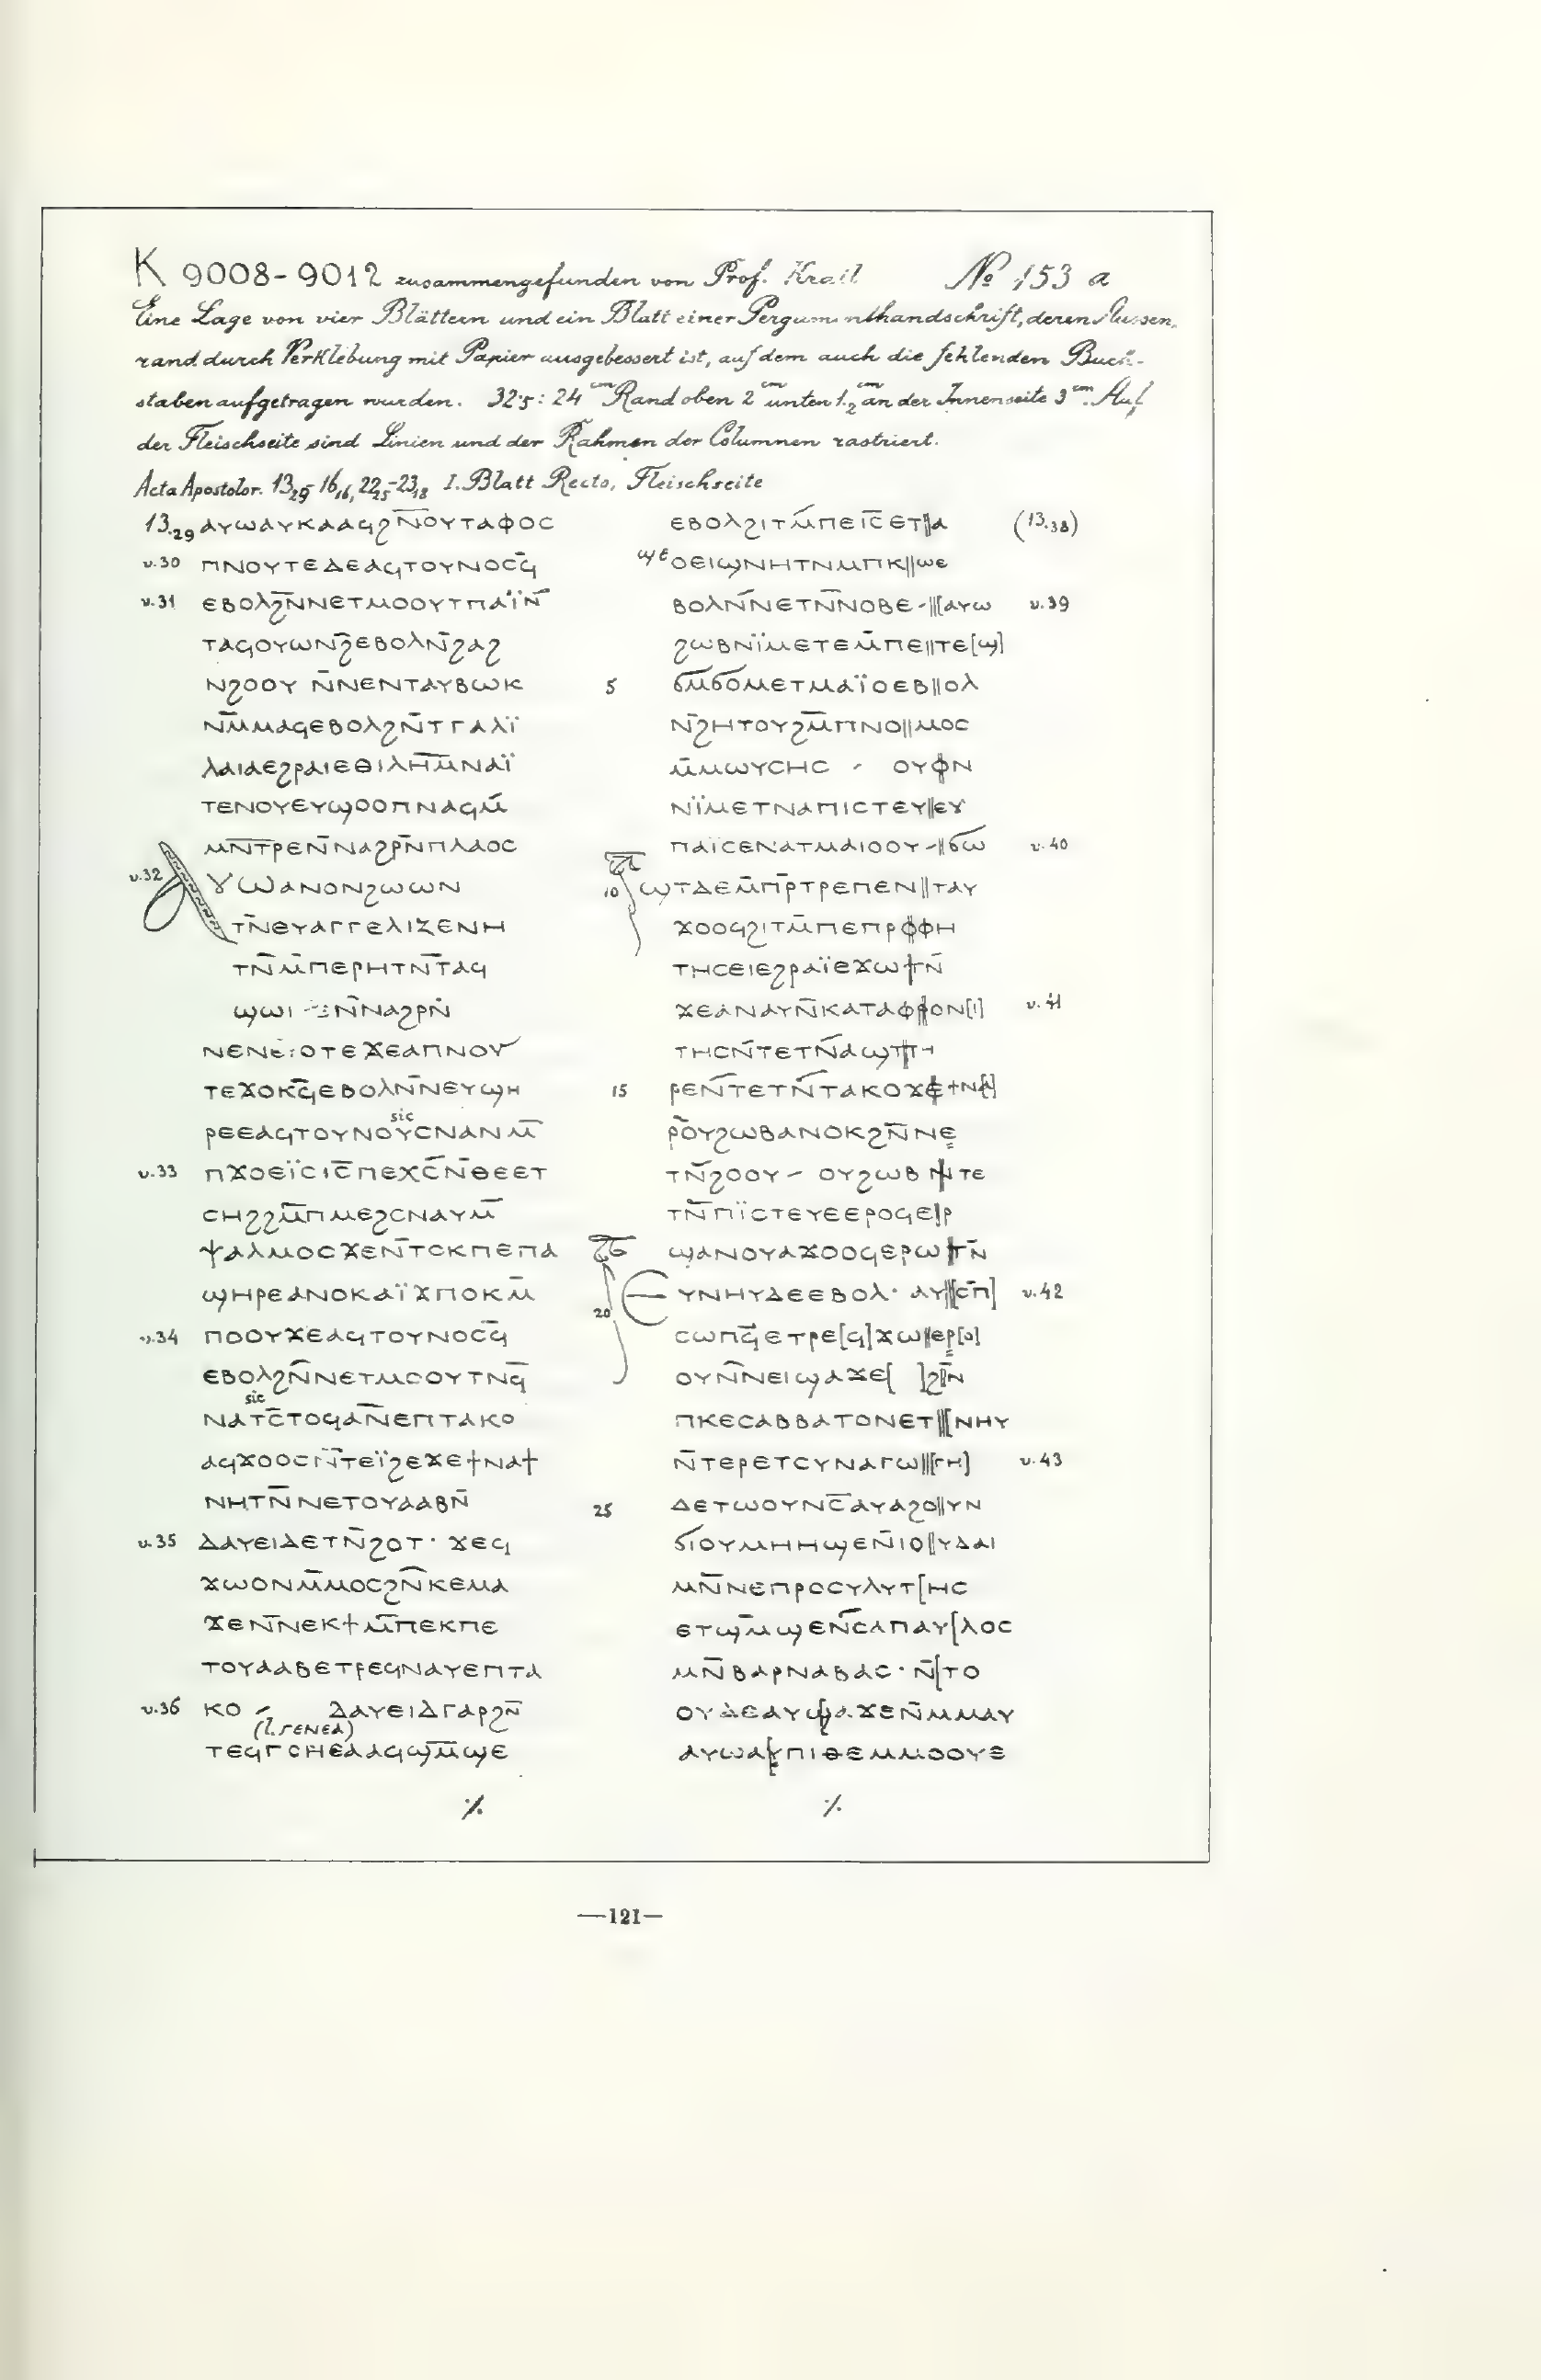 K 9008-9012 zusammengefunden von Prof. Krall № 153 a
Eine Lage von vier Blättern und ein Blatt einer Pergamenthandschrift, deren Aussen-
rand durch Verklebung mit Papier ausgebessert ist, auf dem auch die fehlenden Buch-
staben aufgetragen wurden. 32·5 : 24 cm Rand oben 2 cm unten 1·2 cm an der Innenseite 3 cm. Auf
der Fleischseite sind Linien und der Rahmen der Columnen rastriert.
Acta Apostolor. 13,29-16,16, 22,25-23,18 I. Blatt Recto, Fleischseite
13.29 ⲁⲩⲱⲁⲩⲕⲁⲁϥϩⲛ̅ⲟⲩⲧⲁⲫⲟⲥ
v.30 ⲡⲛⲟⲩⲧⲉⲇⲉⲁϥⲧⲟⲩⲛⲟⲥϥ̅
v.31 ⲉⲃⲟⲗϩⲛ̅ⲛⲉⲧⲙⲟⲟⲩⲧⲡⲁⲓ̈ⲛ̅
ⲧⲁϥⲟⲩⲱⲛϩ̅ⲉⲃⲟⲗⲛ̅ϩⲁϩ
ⲛϩⲟⲟⲩ ⲛ̅ⲛⲉⲛⲧⲁⲩⲃⲱⲕ
ⲛⲙ̅ⲙⲁϥⲉⲃⲟⲗϩⲛ̅ⲧⲅⲁⲗⲓ̈
ⲗⲁⲓⲁⲉϩⲣⲁⲓⲉⲑⲓⲗⲏ̅ⲙ̅ⲛⲁⲓ̈
ⲧⲉⲛⲟⲩⲉⲩϣⲟⲟⲡⲛⲁϥⲙ̅
ⲙⲛ̅ⲧ̅ⲣⲉⲛ̅ⲛⲁϩⲣⲛ̅ⲡⲗⲁⲟⲥ
v.32 ⲩⲱⲁⲛⲟⲛϩⲱⲱⲛ
ⲧⲛ̅ⲉⲩⲁⲅⲅⲉⲗⲓⲍⲉⲛⲏ
ⲧⲛ̅ⲙ̅ⲡⲉⲣⲏⲧⲛ̅ⲧⲁϥ
ϣⲱⲓ ⲛ̅ⲛⲁϩⲣⲛ̅
ⲛⲉⲛⲉⲓⲟⲧⲉϫⲉⲁⲡⲛⲟⲩ
ⲧⲉϫⲟⲕϥ̅ⲉⲃⲟⲗⲛ̅ⲛⲉⲩϣⲏ
sic
ⲣⲉⲉⲁϥⲧⲟⲩⲛⲟⲩⲥⲛⲁⲛⲙ̅
v.33 ⲡϫⲟⲉⲓ̈ⲥⲓⲥ̅ⲡⲉⲭⲥ̅ⲛ̅ⲑⲉⲉⲧ
ⲥⲏϩϩⲙ̅ⲡⲙⲉϩⲥⲛⲁⲩⲙ̅
ⲯⲁⲗⲙⲟⲥϫⲉⲛ̅ⲧⲟⲕⲡⲉⲡⲁ
ϣⲏⲣⲉⲁⲛⲟⲕⲁⲓ̈ϫⲡⲟⲕⲙ̅
v.34 ⲡⲟⲟⲩϫⲉⲁϥⲧⲟⲩⲛⲟⲥϥ̅
ⲉⲃⲟⲗϩⲛ̅ⲛⲉⲧⲙⲟⲟⲩⲧⲛϥ̅
sic
ⲛⲁⲧⲥ̅ⲧⲟϥⲁⲛ̅ⲉⲡⲧⲁⲕⲟ
ⲁϥϫⲟⲟⲥⲛ̅ⲧⲉⲓ̈ϩⲉϫⲉϯⲛⲁϯ
ⲛⲏⲧⲛ̅ⲛⲉⲧⲟⲩⲁⲁⲃⲛ̅
v.35 ⲇⲁⲩⲉⲓⲇⲉⲧⲛ̅ϩⲟⲧ· ϫⲉϥ
ϫⲱⲟⲛⲙ̅ⲙⲟⲥϩⲛ̅ⲕⲉⲙⲁ
ϫⲉⲛ̅ⲛⲉⲕϯⲙ̅ⲡⲉⲕⲡⲉ
ⲧⲟⲩⲁⲁⲃⲉⲧⲣⲉϥⲛⲁⲩⲉⲡⲧⲁ
v.36 ⲕⲟ – ⲇⲁⲩⲉⲓⲇⲅⲁⲣϩⲛ̅
(l. ⲅⲉⲛⲉⲁ)
ⲧⲉϥⲅⲥⲏⲉⲁⲁϥϣⲙ̅ϣⲉ
⁒
ⲉⲃⲟⲗϩⲓⲧⲙ̅ⲡⲉⲓ̈ⲥ̅ⲉⲧ‖ⲁ (13.38)
ϣⲉⲟⲉⲓϣⲛⲏⲧⲛⲙⲡⲕ‖ⲱⲉ
ⲃⲟⲗⲛ̅ⲛⲉⲧⲛ̅ⲛⲟⲃⲉ-‖[ⲁⲩⲱ v.39
ϩⲱⲃⲛⲓ̈ⲙⲉⲧⲉⲙ̅ⲡⲉ‖ⲧⲉ[ϣ]
5 ϭⲙ̅ϭⲟⲙⲉⲧⲙⲁⲓ̈ⲟⲉⲃ‖ⲟⲗ
ⲛ̅ϩⲏⲧⲟⲩϩⲙ̅ⲡⲛⲟ‖ⲙⲟⲥ
ⲙ̅ⲙⲱⲩⲥⲏⲥ - ⲟⲩⲟⲛ
ⲛⲓ̈ⲙⲉⲧⲛⲁⲡⲓⲥⲧⲉⲩ‖ⲉⲩ
ⲡⲁⲓ̈ⲥⲉⲛⲁⲧⲙⲁⲓⲟⲟⲩ-‖ϭⲱ v.40
10 ϣⲧⲇⲉⲙ̅ⲡⲣ̅ⲧⲣⲉⲡⲉⲛ‖ⲧⲁⲩ
ϫⲟⲟϥϩⲓⲧⲙ̅ⲡⲉⲡⲣⲟⲫⲏ
ⲧⲏⲥⲉⲓⲉϩⲣⲁⲓ̈ⲉϫⲱⲧⲛ̅
ϫⲉⲁⲛⲁⲩⲛ̅ⲕⲁⲧⲁⲫⲣⲟⲛ[ⲓ] v.41
ⲧⲏⲥⲛ̅ⲧⲉⲧⲛ̅ⲁϣⲡⲏ
15 ⲣⲉⲛ̅ⲧⲉⲧⲛ̅ⲧⲁⲕⲟϫⲉϯⲛⲁ
ⲣ̅ⲟⲩϩⲱⲃⲁⲛⲟⲕϩⲛ̅ⲛⲉ
ⲧⲛ̅ϩⲟⲟⲩ – ⲟⲩϩⲱⲃ ⲛⲧⲉ
ⲧⲛ̅ⲡⲓ̈ⲥⲧⲉⲩⲉⲉⲣⲟϥⲉ|ⲣ
ϣⲁⲛⲟⲩⲁϫⲟⲟϥⲉⲣⲱⲧⲛ̅
20 ⲉⲩⲛⲏⲩⲇⲉⲉⲃⲟⲗ· ⲁⲩ‖[ⲥⲡ̅] v.42
ⲥⲱⲡϥ̅ⲉⲧⲣⲉ[ϥ]ϫⲱ‖ⲉⲣ[ⲟ]
ⲟⲩⲛ̅ⲛⲉⲓϣⲁϫⲉ[ ]ϩⲙ̅
ⲡⲕⲉⲥⲁⲃⲃⲁⲧⲟⲛⲉⲧ‖[ⲛⲏⲩ
ⲛ̅ⲧⲉⲣⲉⲧⲥⲩⲛⲁⲅⲱ‖[ⲅⲏ] v.43
25 ⲇⲉⲧⲱⲟⲩⲛⲥ̅ⲁⲩⲁϩⲟ‖ⲩⲛ
ϭⲓⲟⲩⲙⲏⲏϣⲉⲛ̅ⲓⲟ‖ⲩⲇⲁⲓ
ⲙⲛ̅ⲛⲉⲡⲣⲟⲥⲩⲗⲩⲧ[ⲏⲥ
ⲉⲧϣⲙ̅ϣⲉⲛ̅ⲥⲁⲡⲁⲩ[ⲗⲟⲥ
ⲙⲛ̅ⲃⲁⲣⲛⲁⲃⲁⲥ· ⲛ̅[ⲧⲟ
ⲟⲩⲇⲉⲁⲩϣⲁϫⲉⲛ̅ⲙⲙⲁⲩ
ⲁⲩⲱⲁ[ⲩⲡⲓⲑⲉⲙⲙⲟⲟⲩⲉ
⁒
—121—